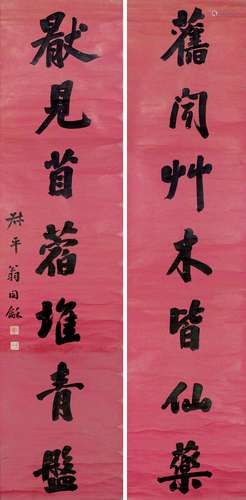 舊聞艸木皆仙藥
厭見苜蓿堆青盤
叔平翁同龢